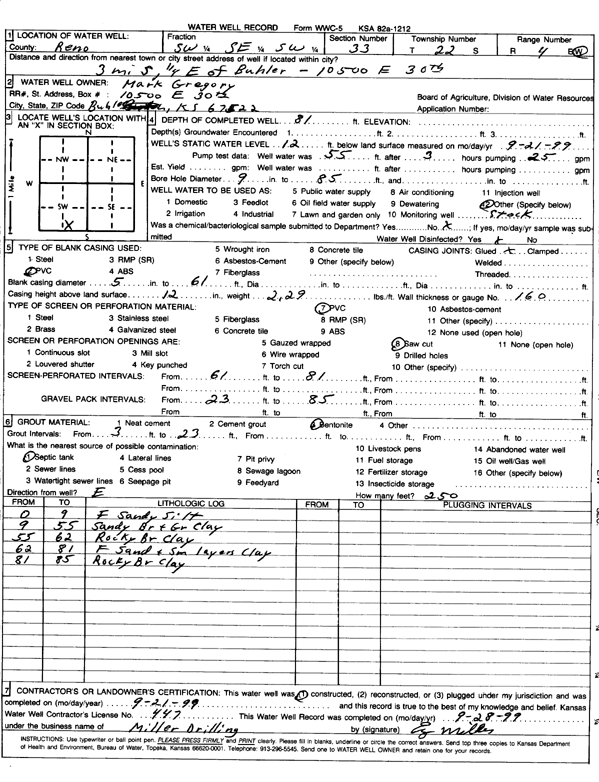 WATER WELL RECORD Form WWC-5 KSA 82a-1212
1 LOCATION OF WATER WELL: Fraction Section Number Township Number Range Number
County: Reno SW ¼ SE ¼ SW ¼ 33 T 22 S R 4 E W
Distance and direction from nearest town or city street address of well if located within city?
3 mi S, ¼ E of Buhler - 10500 E 30th
2 WATER WELL OWNER: Mark Gregory
RR#, St. Address, Box # : 10500 E 30th Board of Agriculture, Division of Water Resources
City, State, ZIP Code : Buhler, KS 67522 Application Number:
3 LOCATE WELL'S LOCATION WITH AN "X" IN SECTION BOX:
N
NW NE
W E
SW SE
X
S
1 Mile
4 DEPTH OF COMPLETED WELL 81 ft. ELEVATION:
Depth(s) Groundwater Encountered 1. ft. 2. ft. 3. ft.
WELL'S STATIC WATER LEVEL 12 ft. below land surface measured on mo/day/yr 9-21-99
Pump test data: Well water was 55 ft. after 3 hours pumping 25 gpm
Est. Yield gpm: Well water was ft. after hours pumping gpm
Bore Hole Diameter 9 in. to 85 ft., and in. to ft.
WELL WATER TO BE USED AS: 5 Public water supply 8 Air conditioning 11 Injection well
1 Domestic 3 Feedlot 6 Oil field water supply 9 Dewatering 12 Other (Specify below)
2 Irrigation 4 Industrial 7 Lawn and garden only 10 Monitoring well Stock
Was a chemical/bacteriological sample submitted to Department? Yes No X; If yes, mo/day/yr sample was sub-
mitted Water Well Disinfected? Yes X No
5 TYPE OF BLANK CASING USED: 5 Wrought iron 8 Concrete tile CASING JOINTS: Glued X Clamped
1 Steel 3 RMP (SR) 6 Asbestos-Cement 9 Other (specify below) Welded
2 PVC 4 ABS 7 Fiberglass Threaded
Blank casing diameter 5 in. to 61 ft., Dia in. to ft., Dia in. to ft.
Casing height above land surface 12 in., weight 2.29 lbs./ft. Wall thickness or gauge No. 160
TYPE OF SCREEN OR PERFORATION MATERIAL: 7 PVC 10 Asbestos-cement
1 Steel 3 Stainless steel 5 Fiberglass 8 RMP (SR) 11 Other (specify)
2 Brass 4 Galvanized steel 6 Concrete tile 9 ABS 12 None used (open hole)
SCREEN OR PERFORATION OPENINGS ARE: 5 Gauzed wrapped 8 Saw cut 11 None (open hole)
1 Continuous slot 3 Mill slot 6 Wire wrapped 9 Drilled holes
2 Louvered shutter 4 Key punched 7 Torch cut 10 Other (specify)
SCREEN-PERFORATED INTERVALS: From 61 ft. to 81 ft., From ft. to ft.
From ft. to ft., From ft. to ft.
GRAVEL PACK INTERVALS: From 23 ft. to 85 ft., From ft. to ft.
From ft. to ft., From ft. to ft.
6 GROUT MATERIAL: 1 Neat cement 2 Cement grout 3 Bentonite 4 Other
Grout Intervals: From 3 ft. to 23 ft., From ft. to ft., From ft. to ft.
What is the nearest source of possible contamination: 10 Livestock pens 14 Abandoned water well
1 Septic tank 4 Lateral lines 7 Pit privy 11 Fuel storage 15 Oil well/Gas well
2 Sewer lines 5 Cess pool 8 Sewage lagoon 12 Fertilizer storage 16 Other (specify below)
3 Watertight sewer lines 6 Seepage pit 9 Feedyard 13 Insecticide storage
Direction from well? E How many feet? 250
FROM TO LITHOLOGIC LOG FROM TO PLUGGING INTERVALS
0 9 F Sandy Silt
9 55 Sandy Br + Gr Clay
55 62 Rocky Br Clay
62 81 F Sand + Sm layers Clay
81 85 Rocky Br Clay
7 CONTRACTOR'S OR LANDOWNER'S CERTIFICATION: This water well was (1) constructed, (2) reconstructed, or (3) plugged under my jurisdiction and was
completed on (mo/day/year) 9-21-99 and this record is true to the best of my knowledge and belief. Kansas
Water Well Contractor's License No. 447 This Water Well Record was completed on (mo/day/yr) 9-28-99
under the business name of Miller Drilling by (signature) Miller
INSTRUCTIONS: Use typewriter or ball point pen. PLEASE PRESS FIRMLY and PRINT clearly. Please fill in blanks, underline or circle the correct answers. Send top three copies to Kansas Department
of Health and Environment, Bureau of Water, Topeka, Kansas 66620-0001. Telephone: 913-296-5545. Send one to WATER WELL OWNER and retain one for your records.